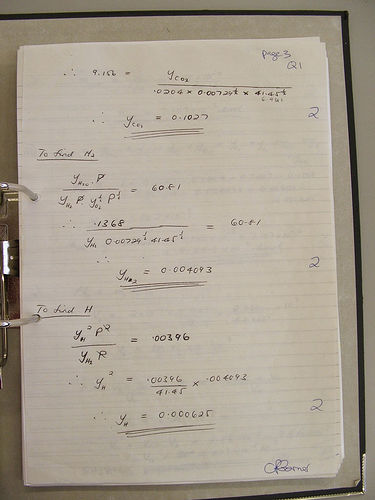 page 3
Q1
∴ 9.156 = y_CO₂ / (.0204 × 0.00724^½ × 41.45^½)
6.461
∴ y_CO₂ = 0.1027
2
To find H₂
y_H₂O P / (y_H₂ P y_O₂^½ P^½) = 60.81
∴ .1368 / (y_H₂ 0.00724^½ 41.45^½) = 60.81
∴
y_H₂ = 0.004093
2
To find H
y_H² P² / (y_H₂ P) = .00396
∴ y_H² = .00396 / 41.45 × .004093
∴ y_H = 0.000625
2